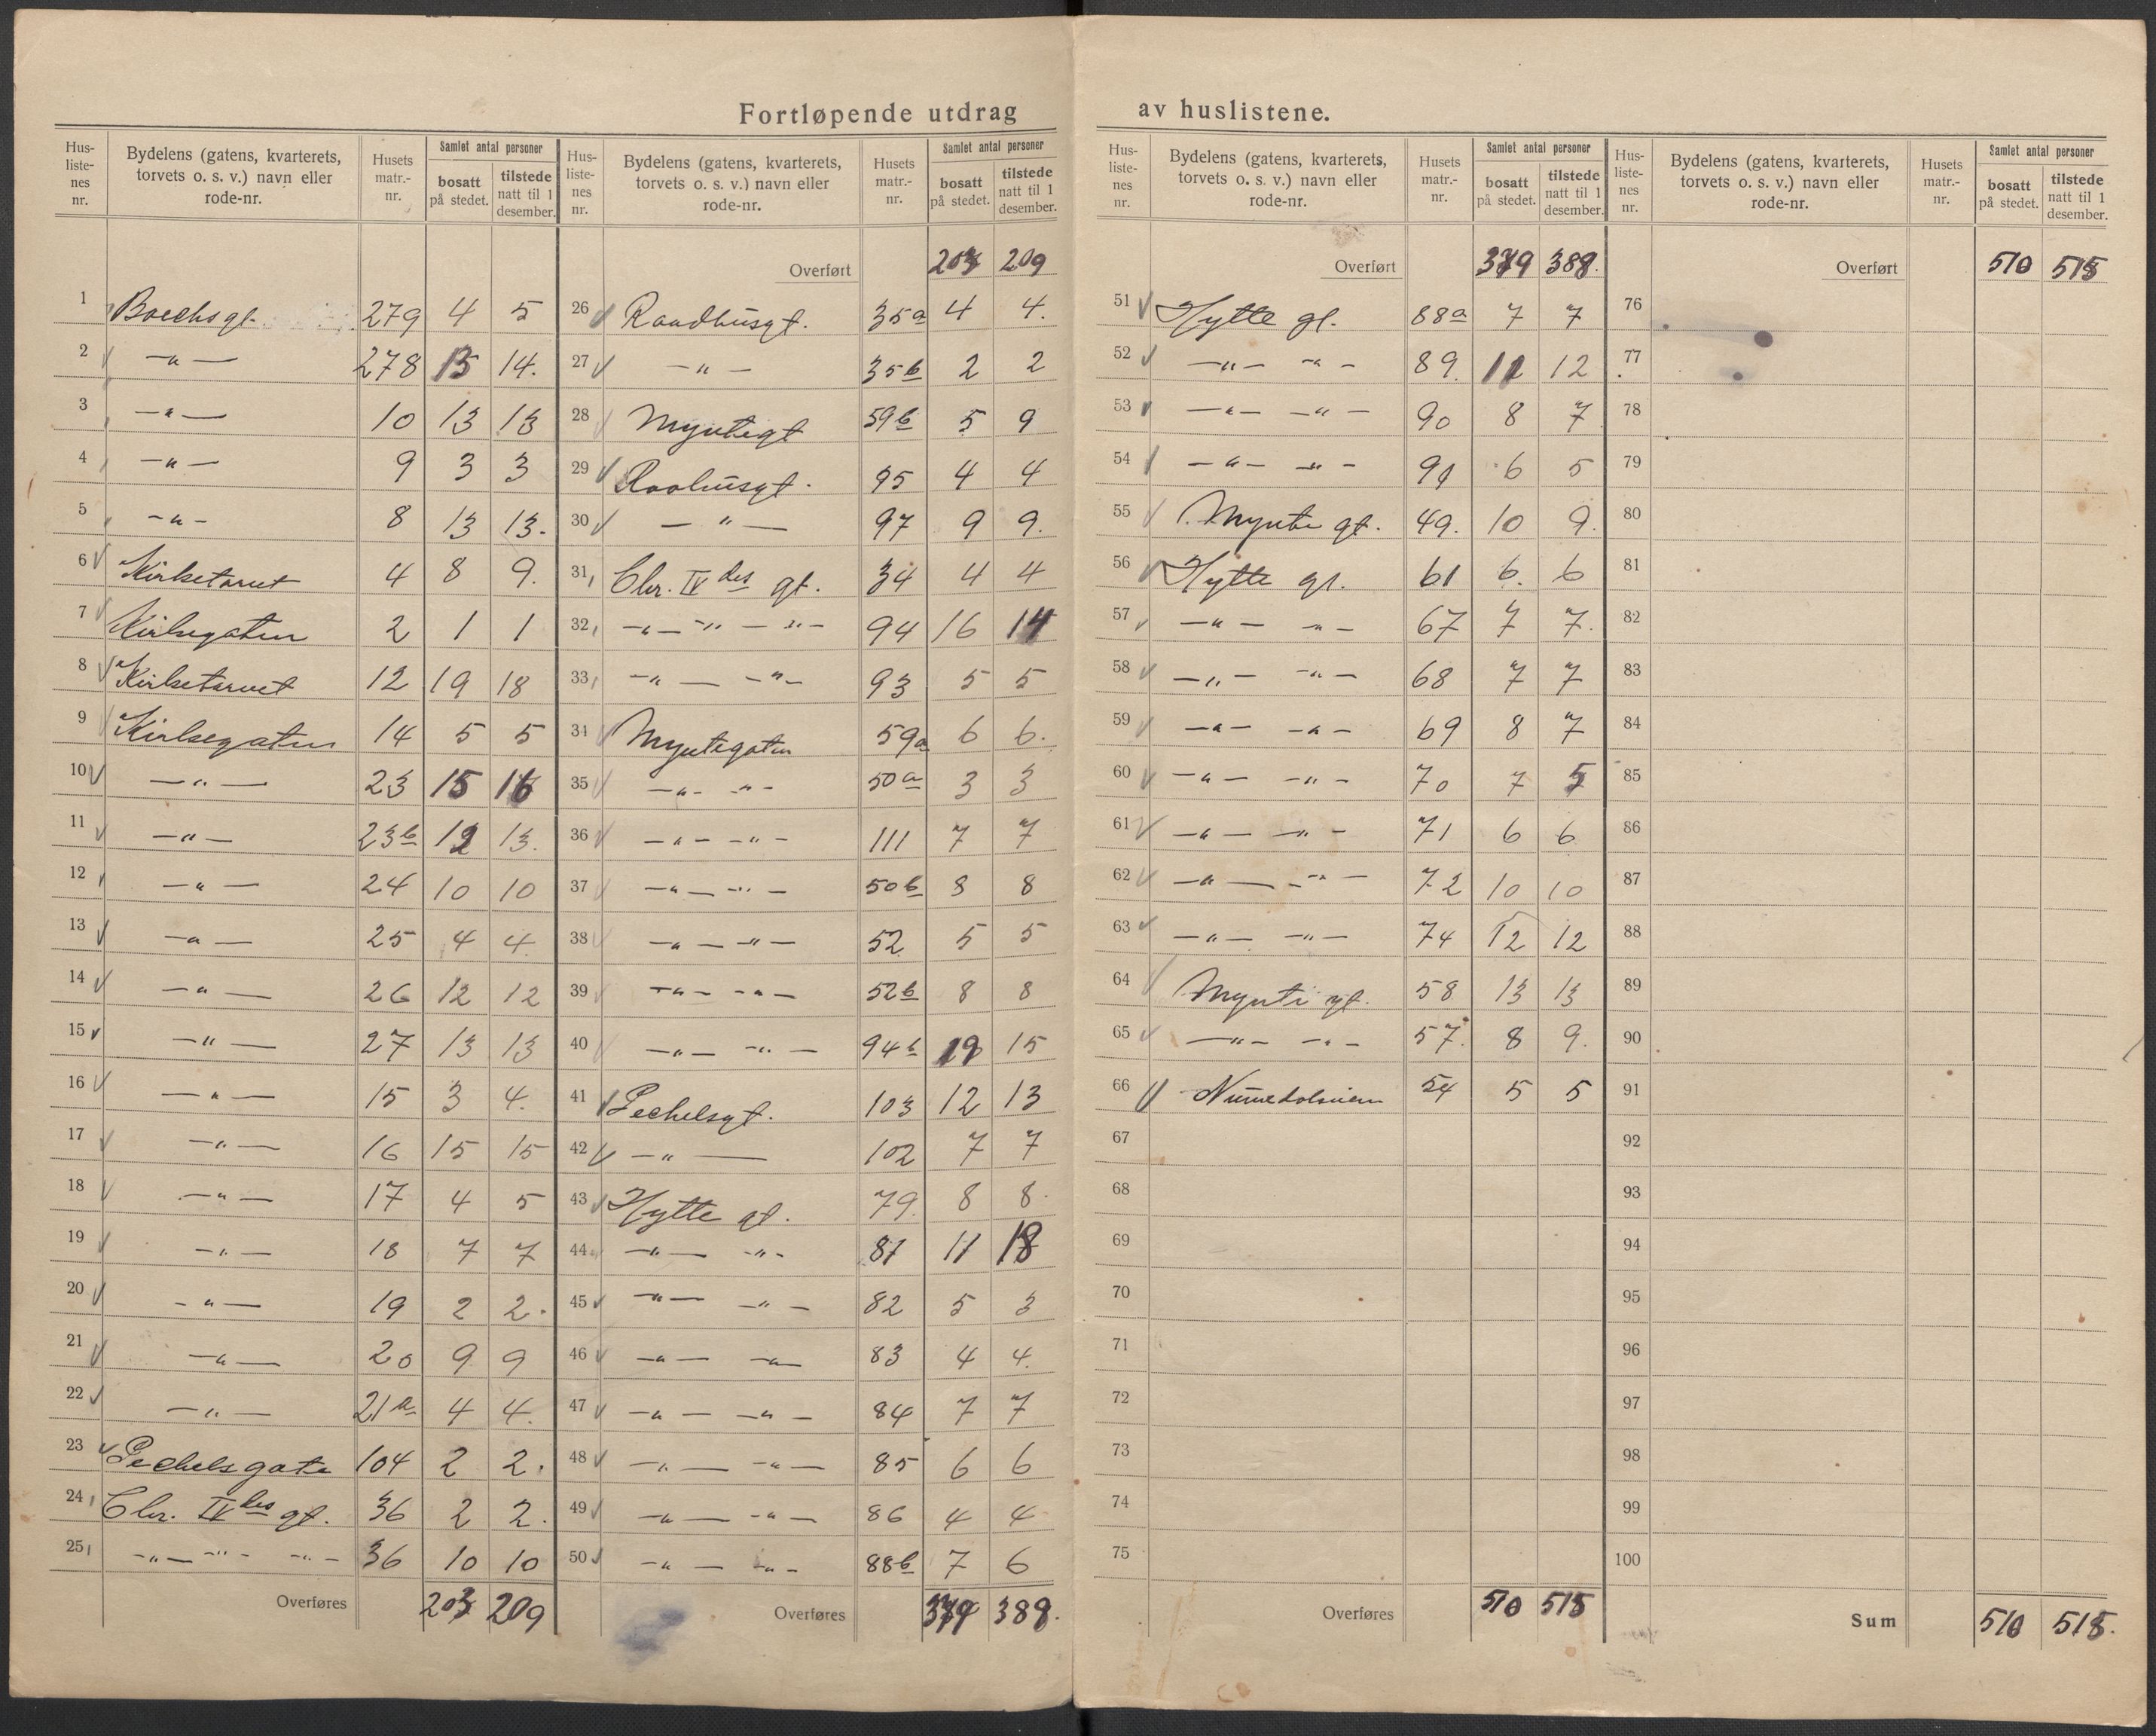 Fortløpende utdrag av huslistene.
Hus-listenes nr. | Bydelens (gatens, kvarterets, torvets o. s. v.) navn eller rode-nr. | Husets matr.-nr. | Samlet antal personer | bosatt på stedet. | tilstede natt til 1 desember.
1 Boechsgt. 279 4 5
2 —"— 278 13 14.
3 —"— 10 13 13
4 —"— 9 3 3
5 —"— 8 13 13.
6 Kirketorvet 4 8 9.
7 Kirkegaten 2 1 1
8 Kirketorvet 12 19 18
9 Kirkegaten 14 5 5
10 —"— 23 15 16
11 —"— 23b 12 13.
12 —"— 24 10 10
13 —"— 25 4 4
14 —"— 26 12 12
15 —"— 27 13 13
16 —"— 15 3 4.
17 —"— 16 15 15
18 —"— 17 4 5
19 —"— 18 7 7
20 —"— 19 2 2.
21 —"— 20 9 9
22 —"— 21a 4 4.
23 Pechelsgate 104 2 2.
24 Chr. IVdes gt. 36 2 2.
25 —"— —"— —"— 36 10 10
Overføres 203 209
Hus-listenes nr. | Bydelens (gatens, kvarterets, torvets o. s. v.) navn eller rode-nr. | Husets matr.-nr. | Samlet antal personer | bosatt på stedet. | tilstede natt til 1 desember.
Overført 203 209
26 Raadhusgt. 35a 4 4.
27 —"— 35b 2 2
28 Myntegt 59b 5 9
29 Raahusgt. 95 4 4
30 —"— 97 9 9.
31 Chr. IVdes gt. 34 4 4
32 —"— —"— —"— 94 16 14
33 —"— —"— 93 5 5
34 Myntegaten 59a 6 6.
35 —"— —"— 50a 3 3
36 —"— —"— 111 7 7
37 —"— —"— 50b 8 8
38 —"— —"— 52 5 5
39 —"— —"— 52b 8 8
40 —"— —"— 94b 19 15
41 Pechelsgt. 103 12 13
42 —"— 102 7 7
43 Hytte gt. 79. 8 8.
44 —"— —"— 81 11 18
45 —"— —"— 82 5 3
46 —"— —"— 83 4 4.
47 —"— —"— 84 7 7
48 —"— —"— 85 6 6
49 —"— —"— 86 4 4
50 —"— —"— 88b 7 6
Overføres 379 388.
Hus-listenes nr. | Bydelens (gatens, kvarterets, torvets o. s. v.) navn eller rode-nr. | Husets matr.-nr. | Samlet antal personer | bosatt på stedet. | tilstede natt til 1 desember.
Overført 379 388.
51 Hytte gt. 88a 7 7
52 —"— —"— 89. 12 12
53 —"— —"— 90 8 7
54 —"— —"— 91 6 5
55 Mynte gt. 49. 10 9.
56 Hytte gt. 61 6. 6
57 —"— —"— 67 7 7.
58 —"— —"— 68 7 7
59 —"— —"— 69 8 7
60 —"— —"— 70 7 5
61 —"— —"— 71 6 6
62 —"— —"— 72 10 10
63 —"— —"— 74 12 12
64 Mynte gt. 58 13 13
65 —"— —"— 57. 8 9.
66 Numedalsveien 54 5 5
67
68
69
70
71
72
73
74
75
Overføres 510 515
Hus-listenes nr. | Bydelens (gatens, kvarterets, torvets o. s. v.) navn eller rode-nr. | Husets matr.-nr. | Samlet antal personer | bosatt på stedet. | tilstede natt til 1 desember.
Overført 510 515
76
77
78
79
80
81
82
83
84
85
86
87
88
89
90
91
92
93
94
95
96
97
98
99
100
Sum 510 515.